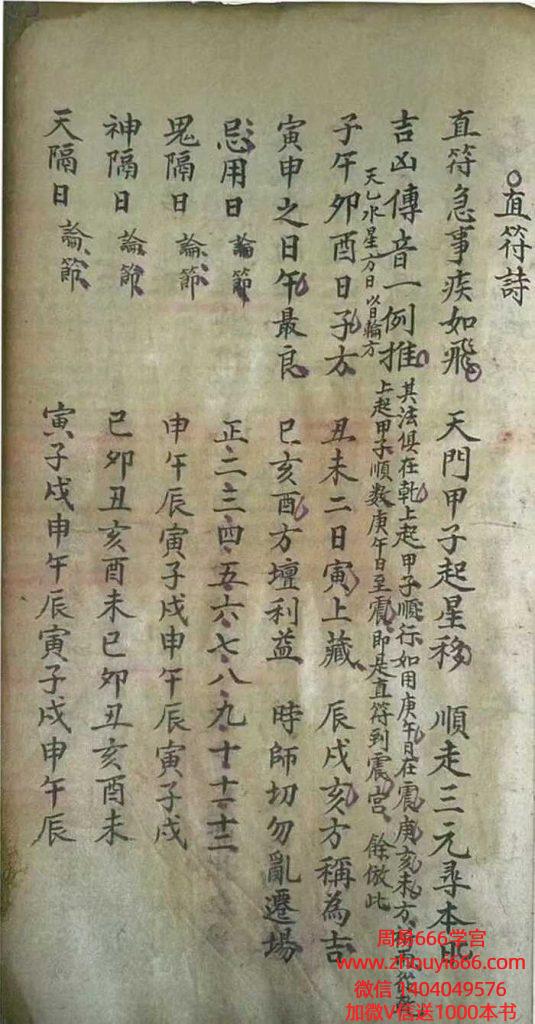 。直符詩
直符急事疾如飛 天門甲子起星移 順走三元尋本
吉凶傳音一例推 其法俱在乾上起甲子順行如用庚午日在震庚亥未方
上起甲子順數庚午日至震即是直符到震宮 餘倣此
天乙水星方日 以日輪方
子午卯酉日子方 丑未二日寅上藏 辰戌亥方稱為吉
寅申之日午最良 巳亥酉方壇利益 時師切勿亂遷場
忌用日 論節 正二三四五六七八九十十一十二
鬼隔日 論節 申午辰寅子戌申午辰寅子戌
神隔日 論節 巳卯丑亥酉未巳卯丑亥酉未
天隔日 論節 寅子戌申午辰寅子戌申午辰
周易666学宫
www.zhouyi666.com
微信1404049576
加微V信送1000本书